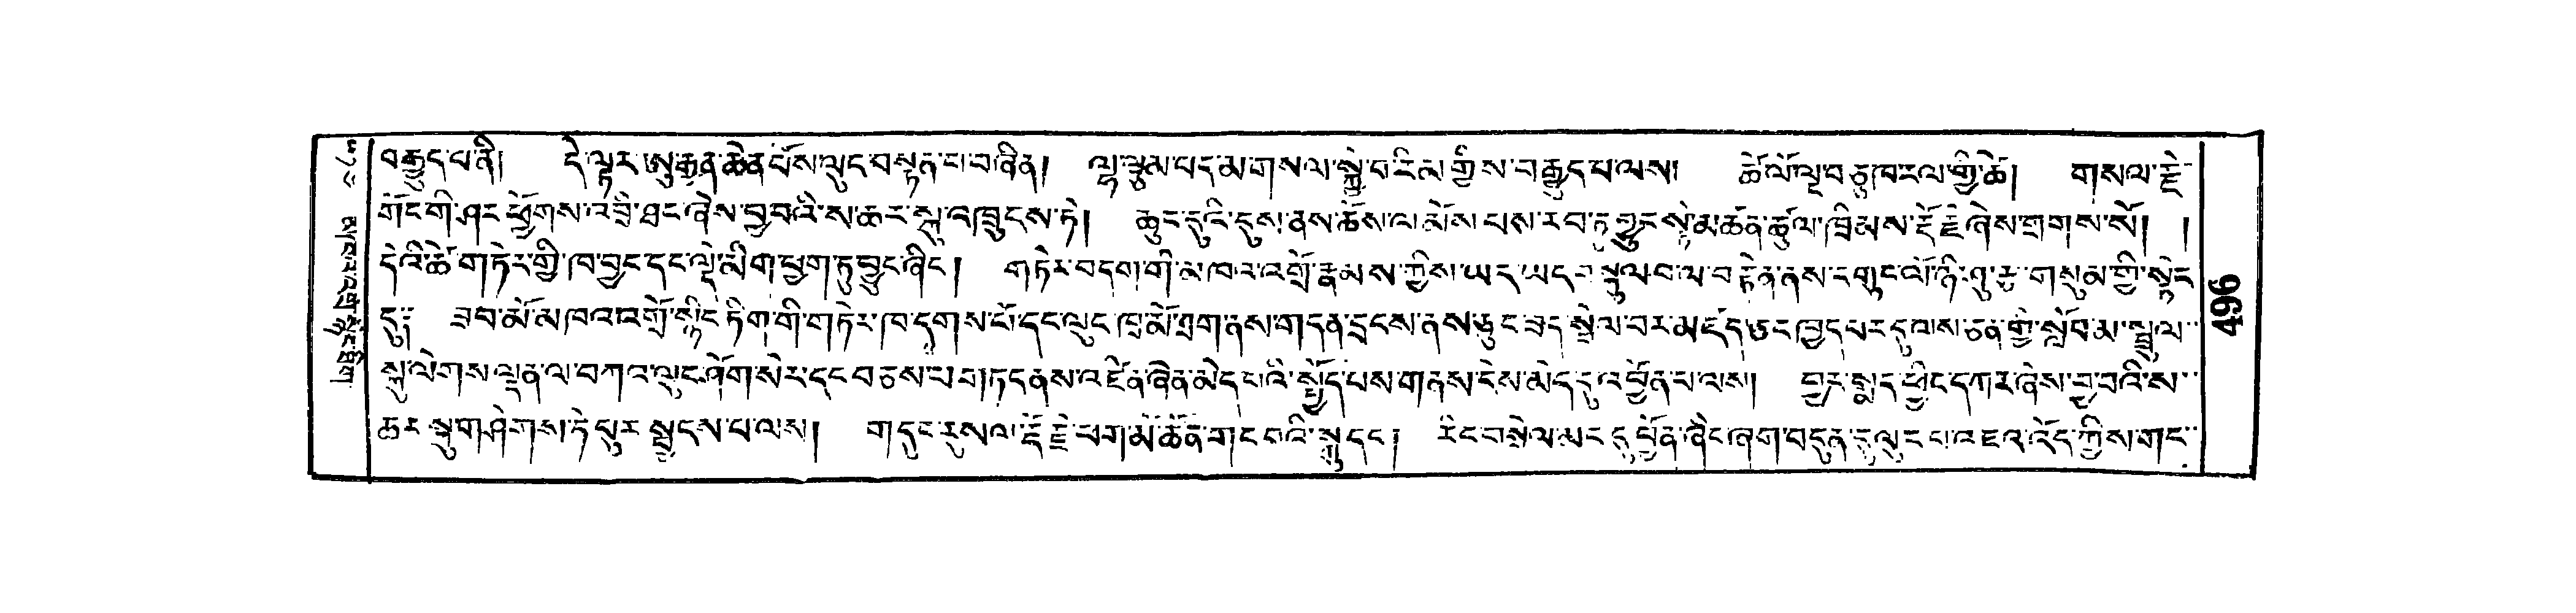 བརྒྱུད་པ་ནི། དེ་ལྟར་ཨུ་རྒྱན་ཆེན་པོས་ལུང་བསྟན་པ་བཞིན། ལྷ་ལྕམ་པད་མ་གསལ་སྐྱེ་བ་རིམ་གྱིས་བརྒྱུད་པ་ལས། ཚེ་ལོ་ལྔ་བཅུ་ཁ་རལ་གྱི་ཚེ། གསལ་རྗེ་
གོང་གི་ཤར་ཕྱོགས་འབྲི་ཐང་ཞེས་བྱ་བའི་ས་ཆར་སྐུ་འཁྲུངས་ཏེ། ཆུང་ངུའི་དུས་ནས་ཆོས་ལ་མོས་པས་རབ་ཏུ་བྱུང་སྟེ་མཚན་ཚུལ་ཁྲིམས་རྡོ་རྗེ་ཞེས་གྲགས་སོ། །
དེའི་ཚེ་གཏེར་གྱི་ཁ་བྱང་དང་ལྡེ་མིག་ཕྱག་ཏུ་བྱུང་ཞིང་། གཏེར་བདག་གི་མཁའ་འགྲོ་རྣམས་ཀྱིས་ཡང་ཡང་བསྐུལ་བ་ལ་བརྟེན་ནས་དགུང་ལོ་ཉི་ཤུ་རྩ་གསུམ་གྱི་སྟེང་
དུ༔ ཟབ་མོ་མཁའ་འགྲོ་སྙིང་ཏིག་གི་གཏེར་ཁ་དྭགས་པོ་དང་ལུང་ཁྲ་མོ་བྲག་ནས་གདན་དྲངས་ནས་ཅུང་ཟད་སྤེལ་བར་མཛད་ཅང་ཁྱད་པར་དུ་འས་ཅན་གྱི་སློབ་མ་སྤྲུལ་
སྐུ་ལེགས་ལྡན་ལ་བཀའ་ལུང་ཤོག་སེར་དང་བཅས་པ་གཏད་ནས་འཛིན་ཞེན་མེད་པའི་སྤྱོད་པས་གནས་ངེས་མེད་དུ་འབྱོན་པ་ལས། བྱར་སྨད་ཕྱིང་དཀར་ཞེས་བྱ་བའི་ས་
ཆར་སྐུ་གཤེགས་ཏེ་པུར་སྦྱངས་པ་ལས། གདུང་རུསལ་རྡོ་རྗེ་ཕག་མོ་ཚོན་གང་བའི་སྐུ་དང་། རིང་བསྲེལ་མང་དུ་བྱོན་ཞིང་ཞག་བདུན་དུ་ལུང་པ་འཇའ་འོད་ཀྱིས་གང་